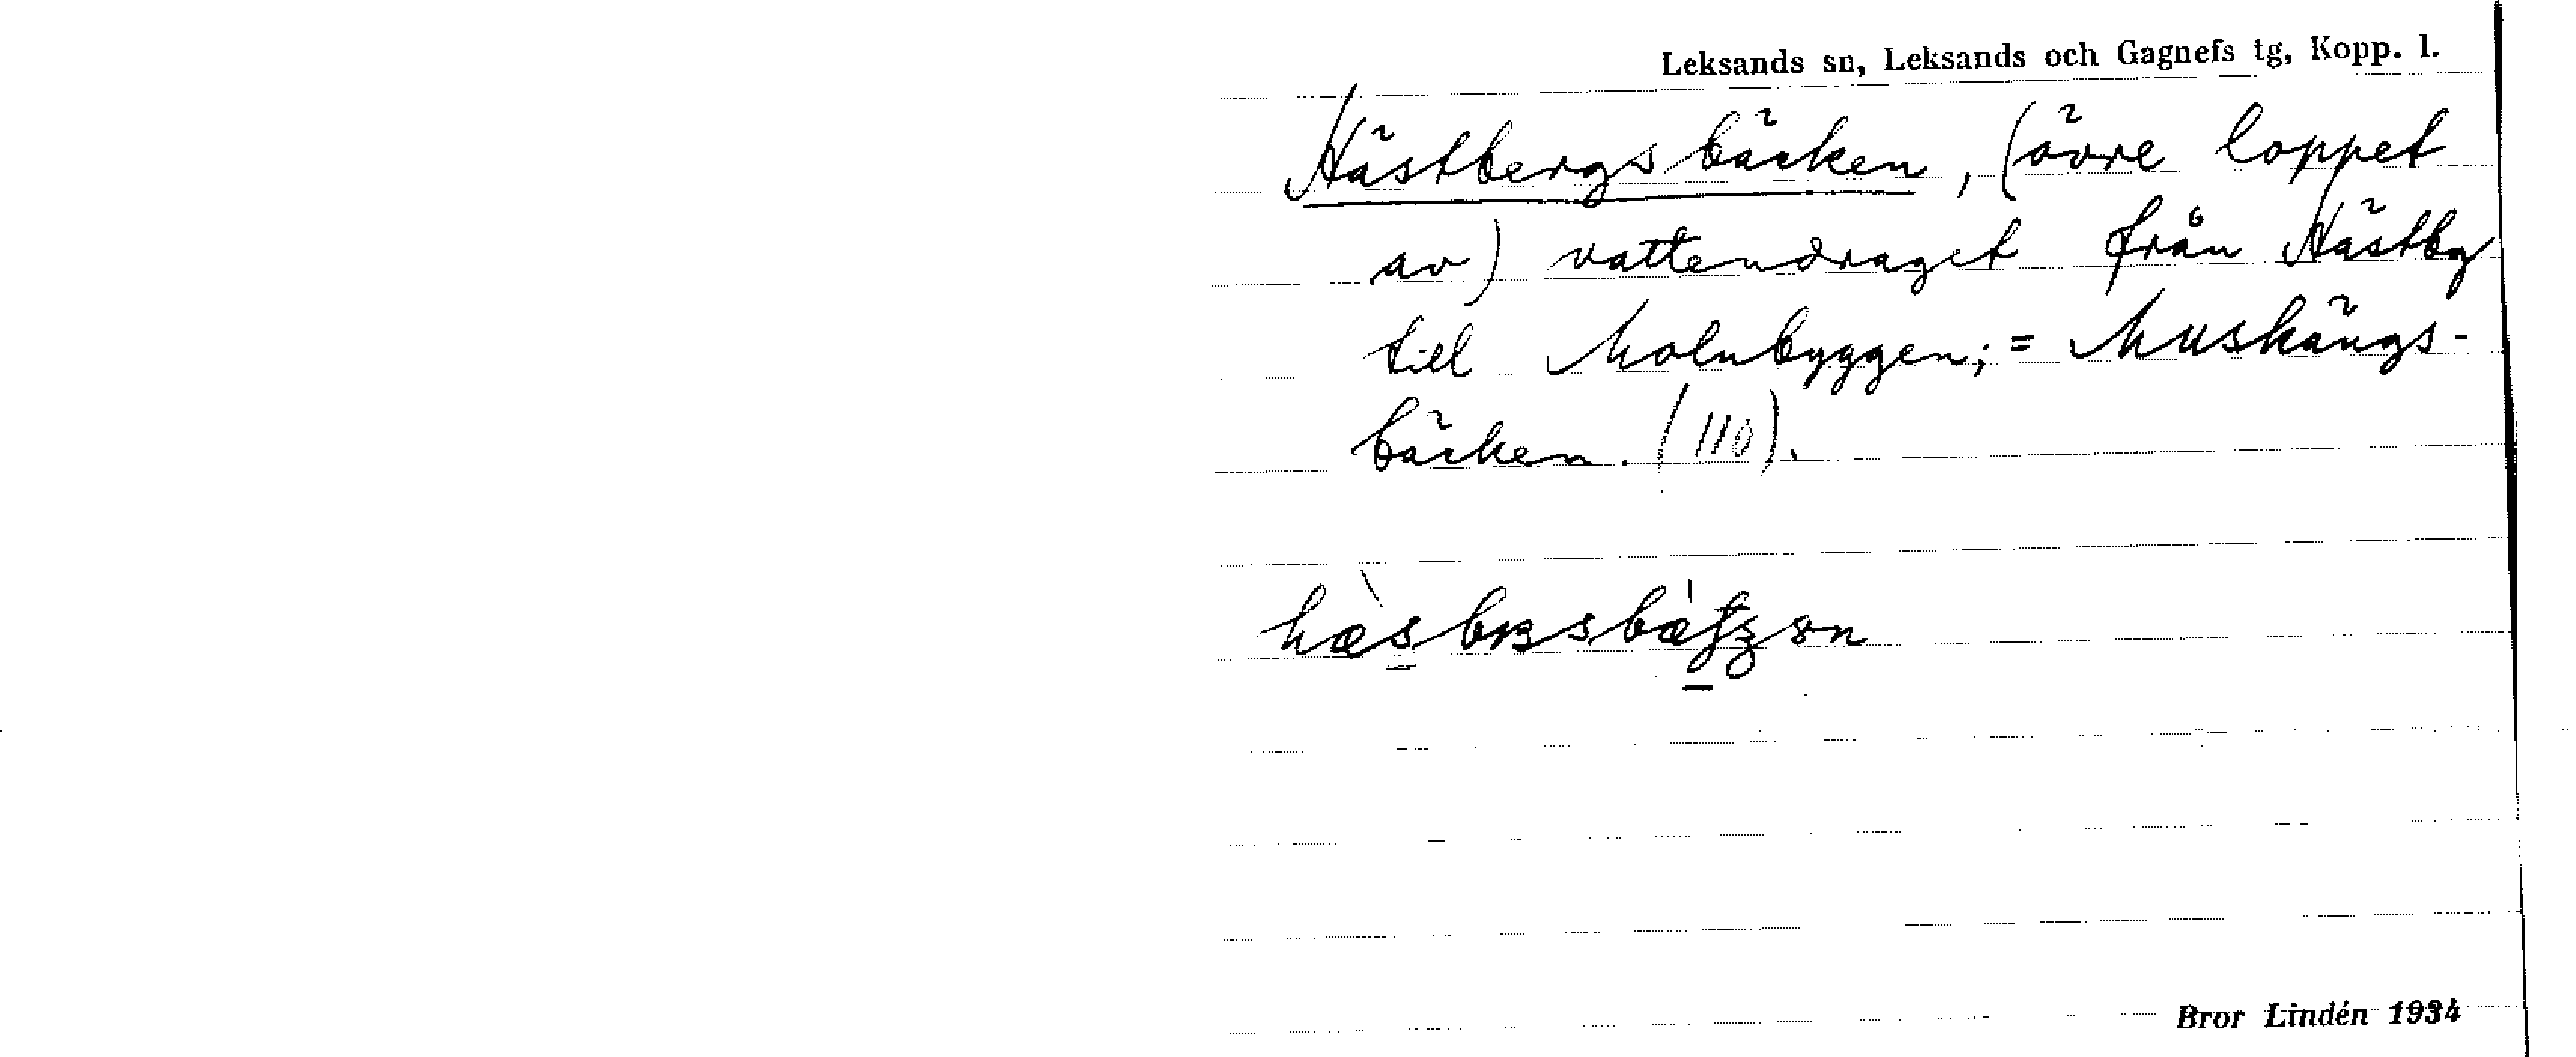 Leksands sn, Leksands och Gagnefs tg, Kopp. l.
Hästbergsbäcken, (övre loppet
av) vattendraget från Hästbg
till Molnbyggen; = Muskängs-
bäcken. (110).
Bror Lindén 1934